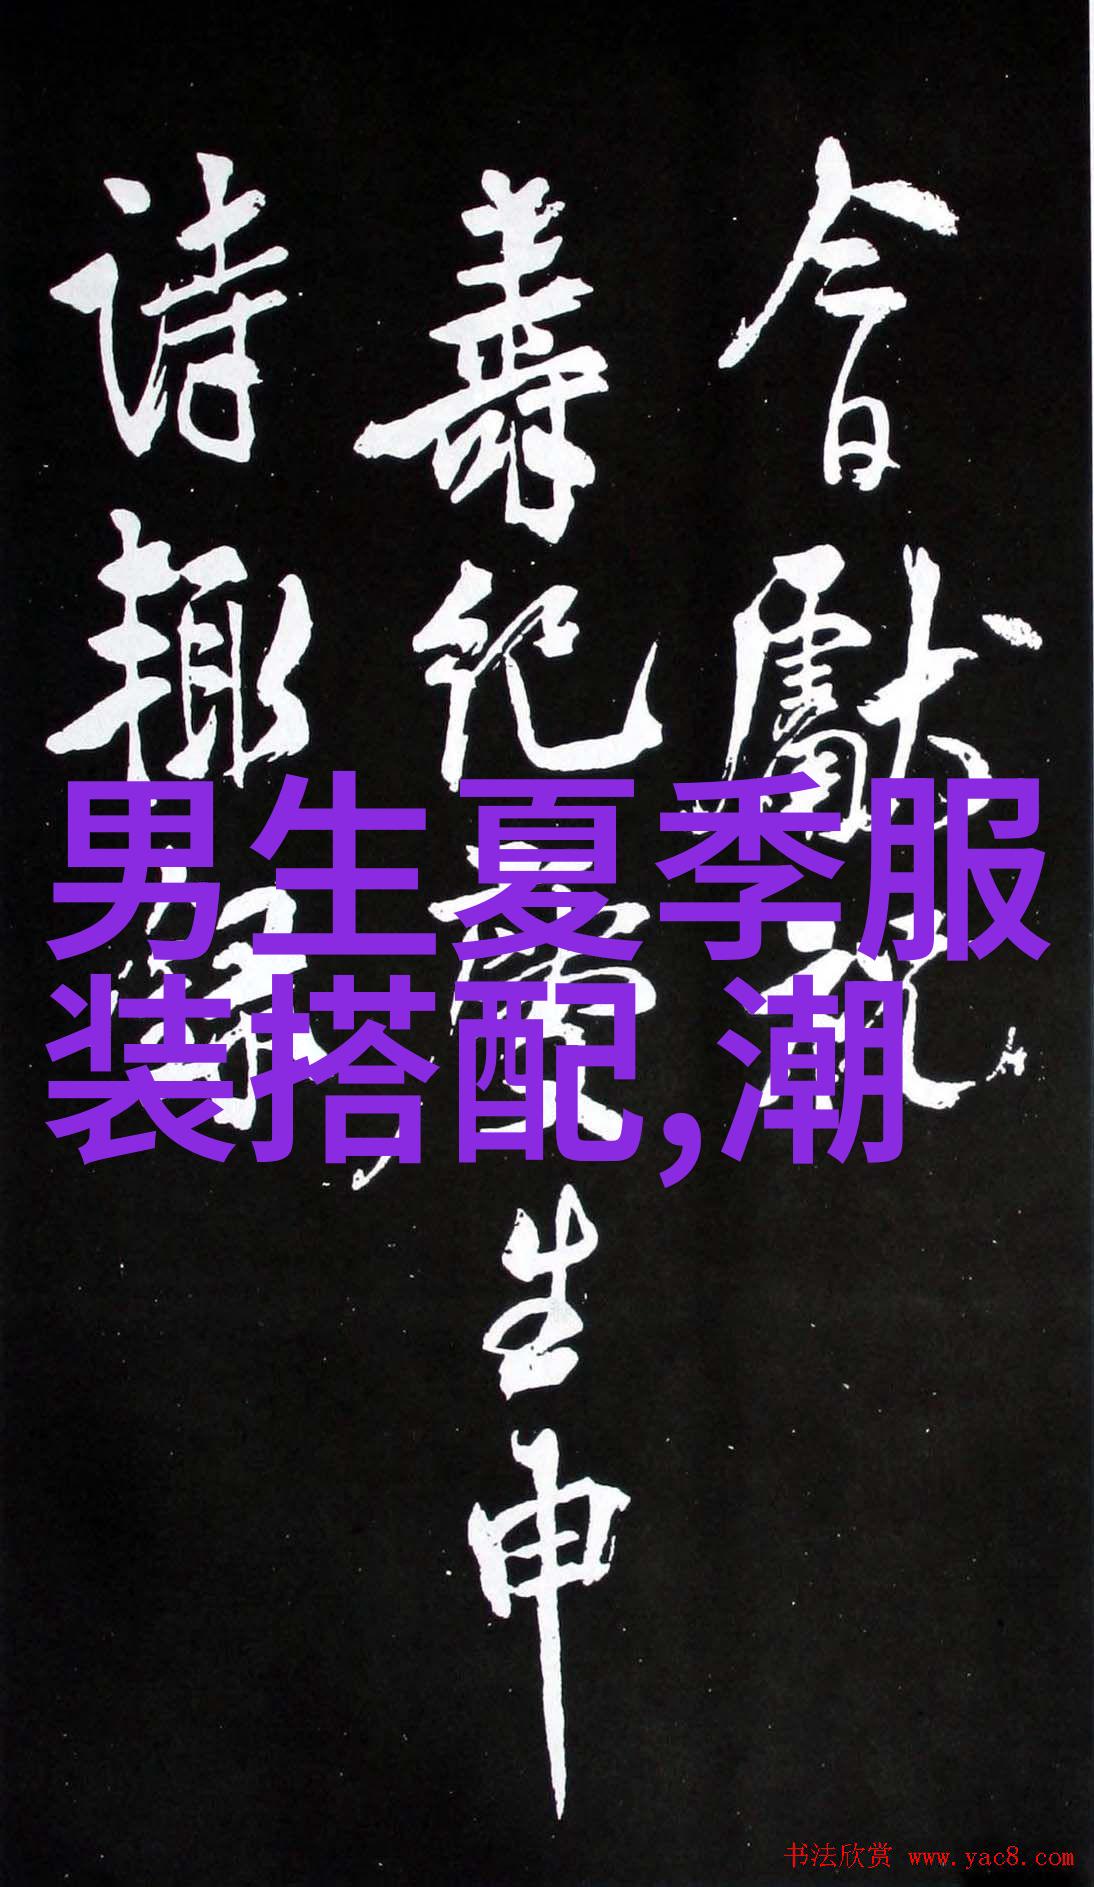 今日獻
壽紀慶生申
詩趣
男生夏季服
装搭配,潮
书法欣赏 www.yac8.com